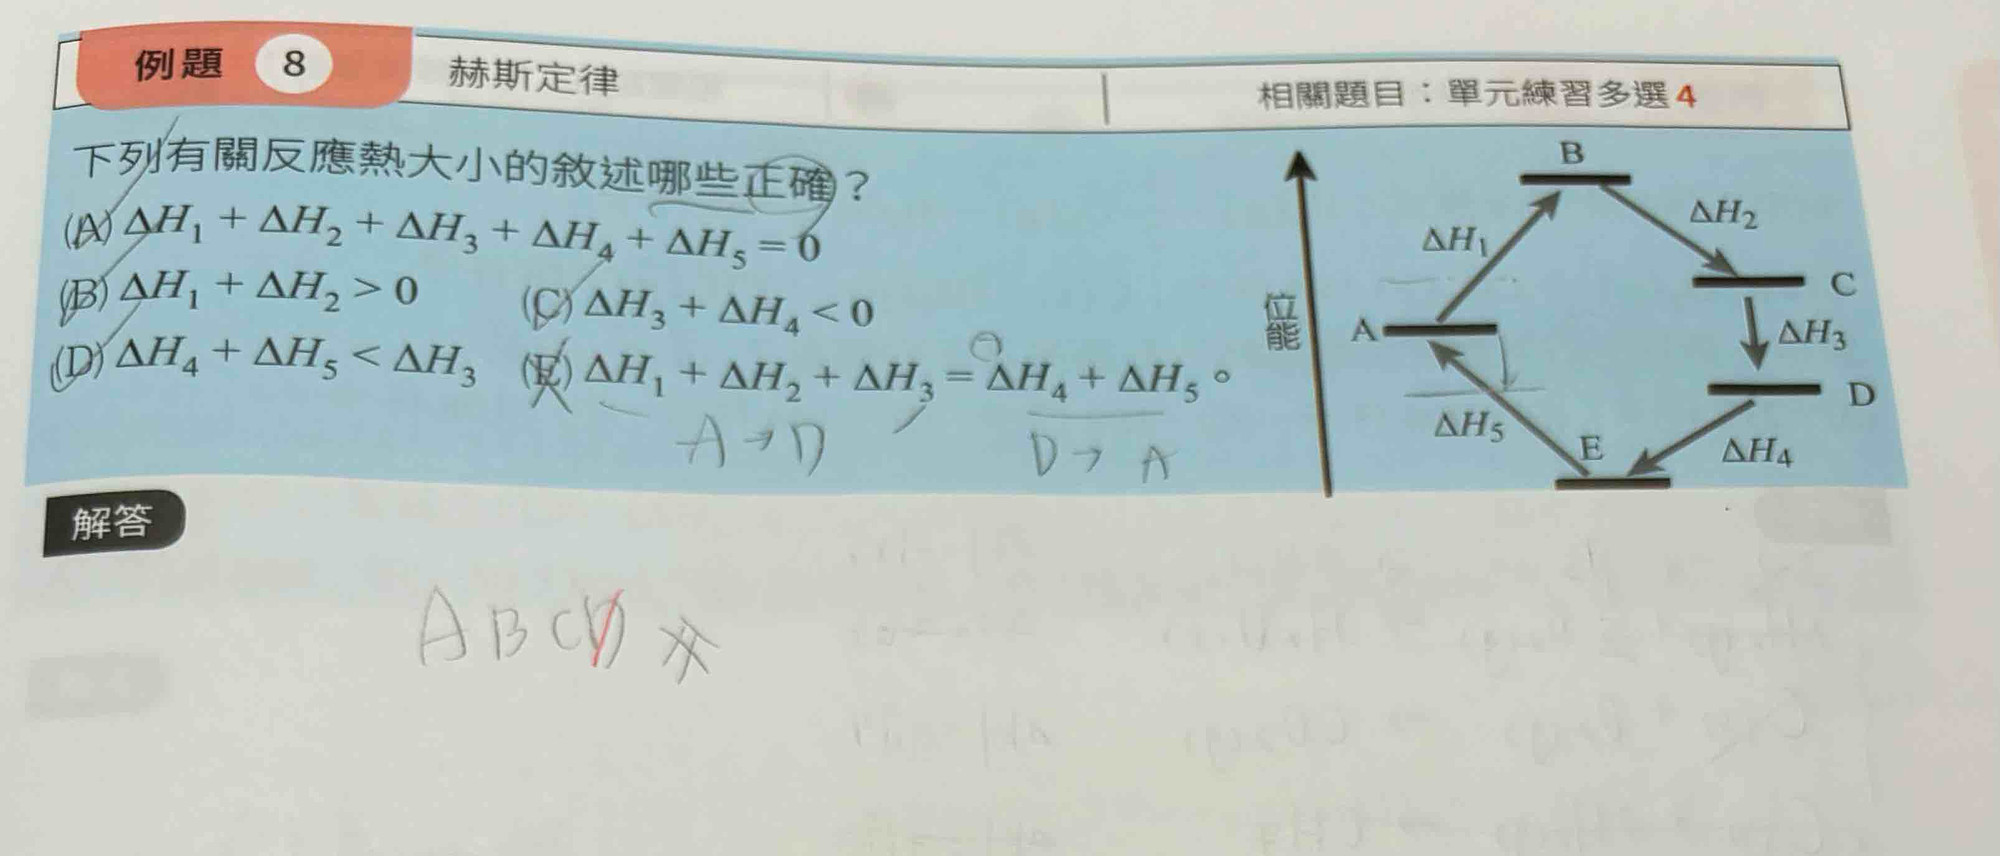 例題 8 赫斯定律 相關題目：單元練習多選4
下列有關反應熱大小的敘述哪些正確？
(A) ΔH₁ + ΔH₂ + ΔH₃ + ΔH₄ + ΔH₅ = 0
(B) ΔH₁ + ΔH₂ > 0 (C) ΔH₃ + ΔH₄ < 0
(D) ΔH₄ + ΔH₅ < ΔH₃ (E) ΔH₁ + ΔH₂ + ΔH₃ = ΔH₄ + ΔH₅。
A→D D→A
位能
B
ΔH₁ ΔH₂
C
A ΔH₃
D
ΔH₅ E ΔH₄
解答
ABCD